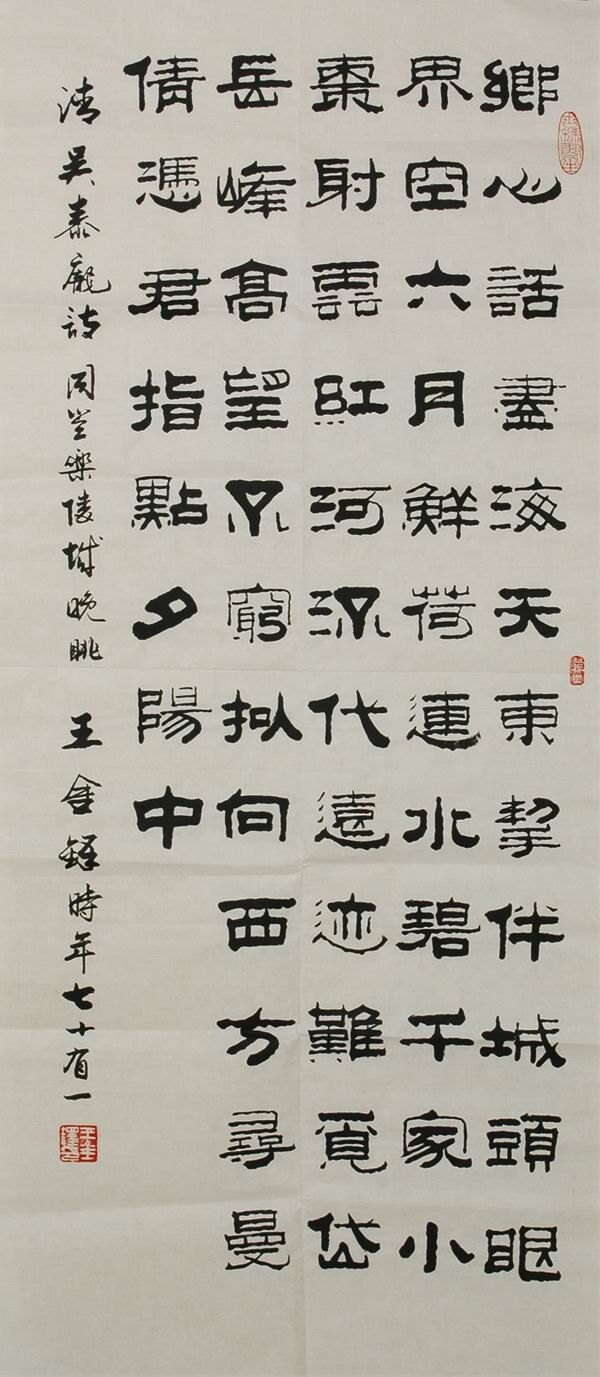 鄉心話盡海天東挈伴城頭眼
界空六月鮮荷連水碧千家小
棗射雲紅河流代遠迹難覓岱
岳峰高望不窮擬向西方尋曼
倩憑君指點夕陽中
清吴泰庬詩同登樂陵城晚眺 王金鐸時年七十有一